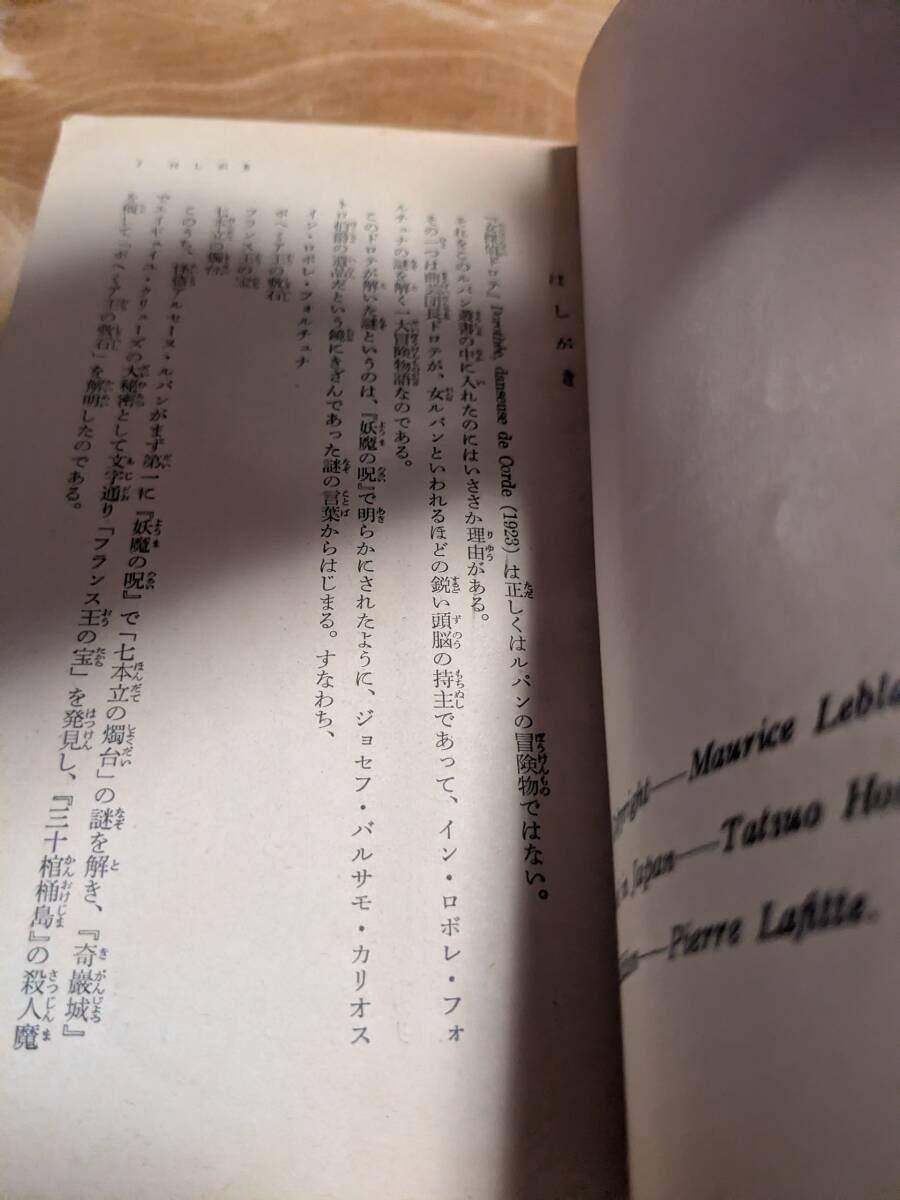 Maurice Lebla
Japan—Tatsuo Ho
Pierre Lafitte.
はしがき
はしがき
『女探偵ドロテ』Dorothée, danseuse de Corde (1923) は正しくはルパンの冒険物ではない。
それをこのルパン叢書の中に入れたのにはいささか理由がある。
その一つは曲芸団長ドロテが、女ルパンといわれるほどの鋭い頭脳の持主であって、イン・ロボレ・フォ
ルチュナの謎を解く一大冒険物語なのである。
このドロテが解いた謎というのは、『妖魔の呪』で明らかにされたように、ジョセフ・バルサモ・カリオス
トロ伯爵の遺品だという鏡にきざんであった謎の言葉からはじまる。すなわち、
イン・ロボレ・フォルチュナ
ボヘミア王の敷石
フランス王の宝
七本立の燭台
このうち、怪盗アルセーヌ・ルパンがまず第一に『妖魔の呪』で「七本立の燭台」の謎を解き、『奇巌城』
でエイギュイユ・クリューズの大秘密として文字通り「フランス王の宝」を発見し、『三十棺桶島』の殺人魔
を倒して「ボヘミア王の敷石」を解明したのである。